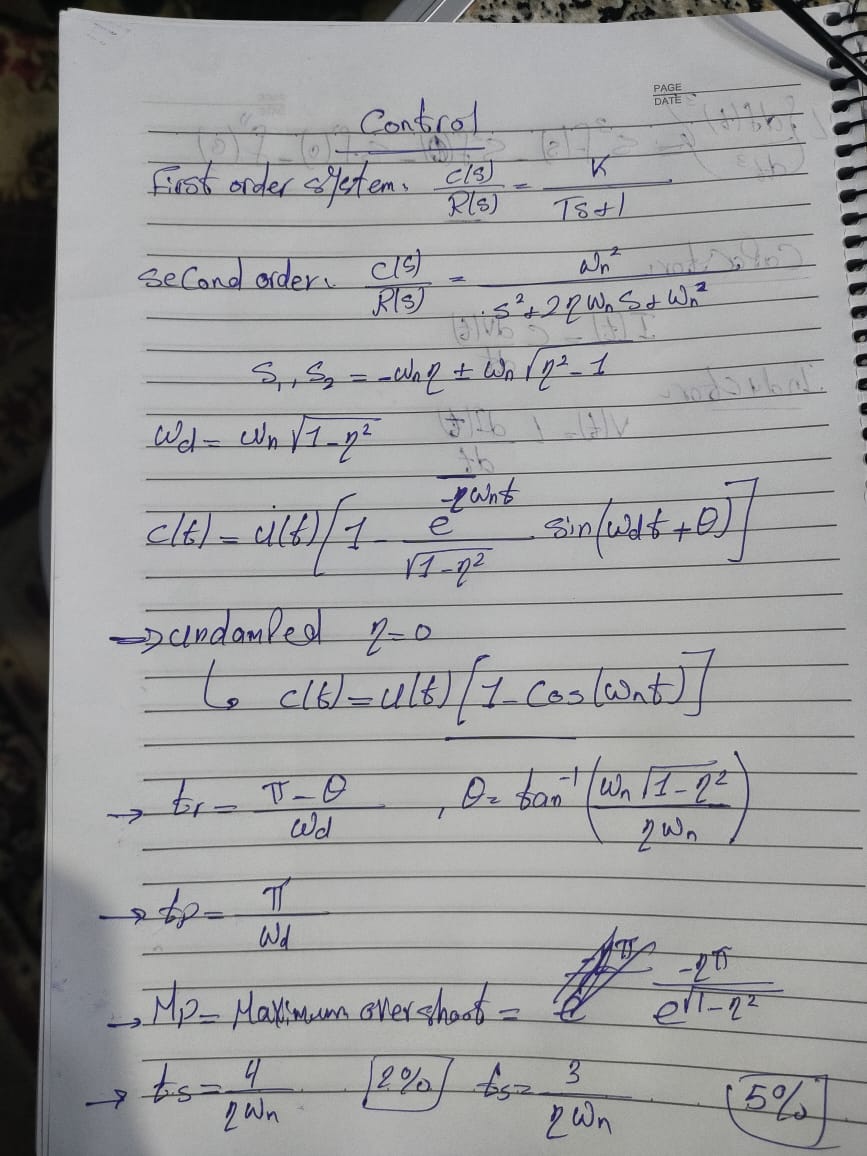 PAGE
DATE
Control
First order system. C(s)/R(s) = K/(Ts+1)
Second order. C(s)/R(s) = ωn²/(s²+2ηωns+ωn²)
S1, S2 = -ωnη ± ωn√(η²-1)
ωd = ωn√(1-η²)
c(t) = u(t)[1 - e^(-ηωnt)/√(1-η²) sin(ωdt+θ)]
→ undamped η=0
↳ c(t) = u(t)[1-Cos(ωnt)]
→ tr = (π-θ)/ωd , θ= tan⁻¹(ωn√(1-η²)/(ηωn))
→ tp = π/ωd
→ Mp = Maximum overshoot = e^(-ηπ/√(1-η²))
→ ts = 4/(ηωn) 2% ts= 3/(ηωn) 5%